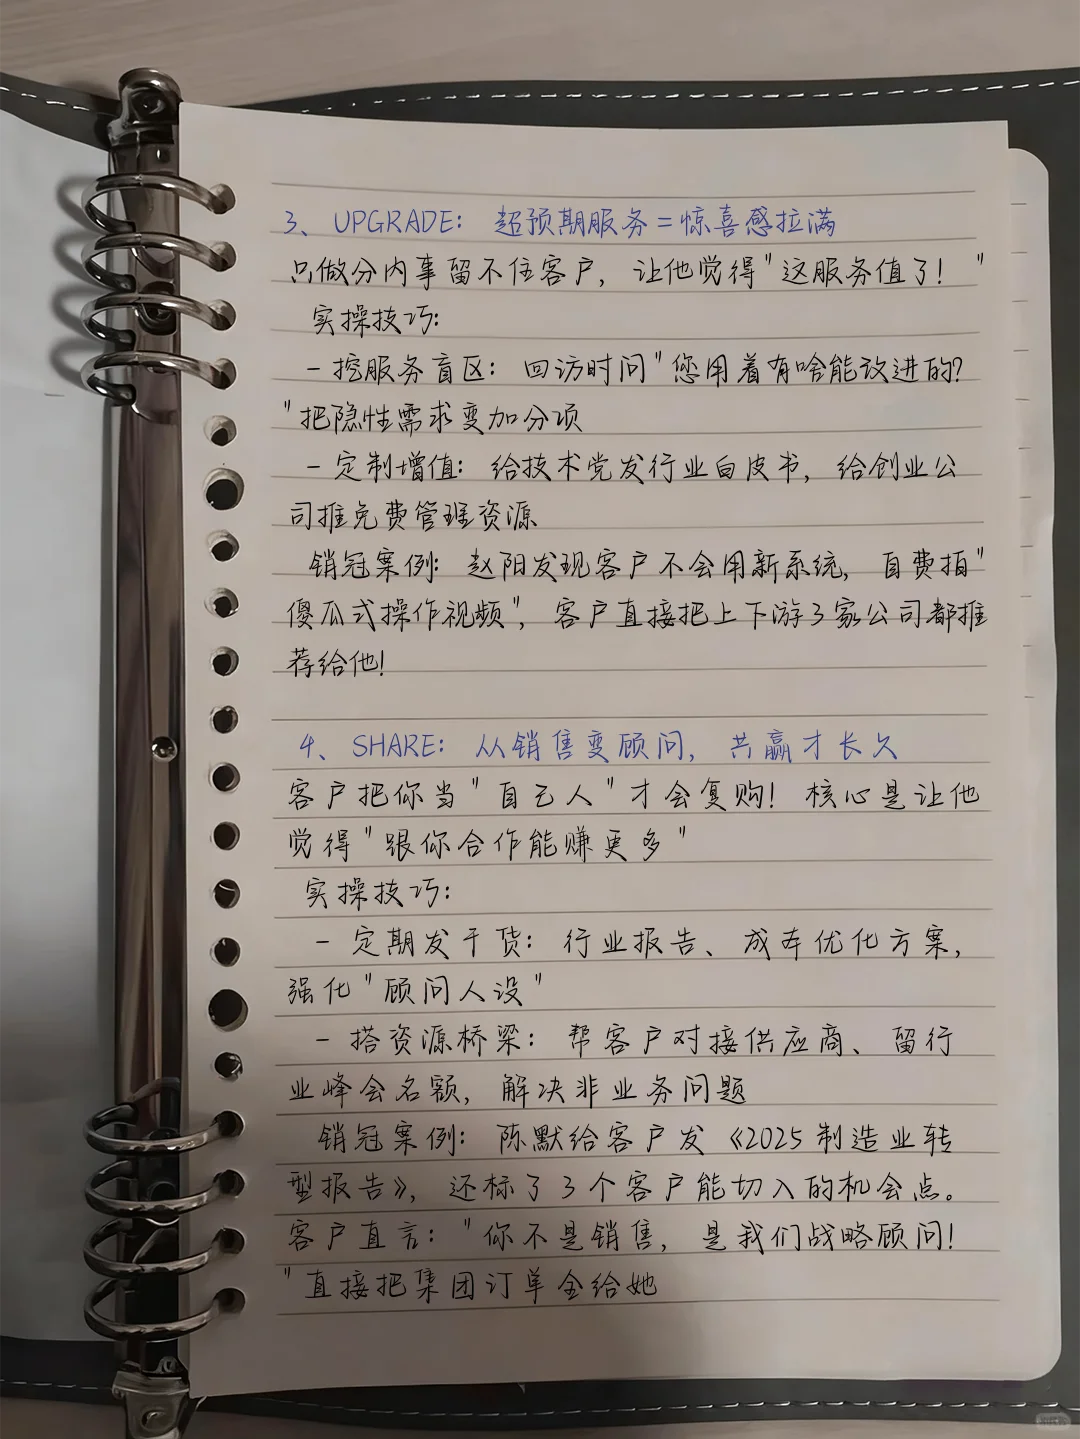 3、UPGRADE：超预期服务=惊喜感拉满
只做分内事留不住客户，让他觉得"这服务值了！"
实操技巧：
-挖服务盲区：回访时问"您用着有啥能改进的？
"把隐性需求变加分项
-定制增值：给技术党发行业白皮书，给创业公
司推免费管理资源
销冠案例：赵阳发现客户不会用新系统，自费拍"
傻瓜式操作视频"，客户直接把上下游3家公司都推
荐给他！
4、SHARE：从销售变顾问，共赢才长久
客户把你当"自己人"才会复购！核心是让他
觉得"跟你合作能赚更多"
实操技巧：
-定期发干货：行业报告、成本优化方案，
强化"顾问人设"
-搭资源桥梁：帮客户对接供应商、留行
业峰会名额，解决非业务问题
销冠案例：陈默给客户发《2025制造业转
型报告》，还标了3个客户能切入的机会点。
客户直言："你不是销售，是我们战略顾问！
"直接把集团订单全给她